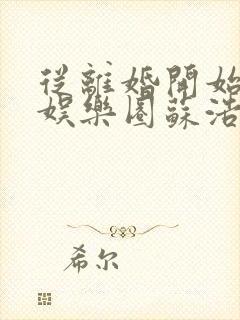 從離婚開始
娛樂圈蘇浩
希尔